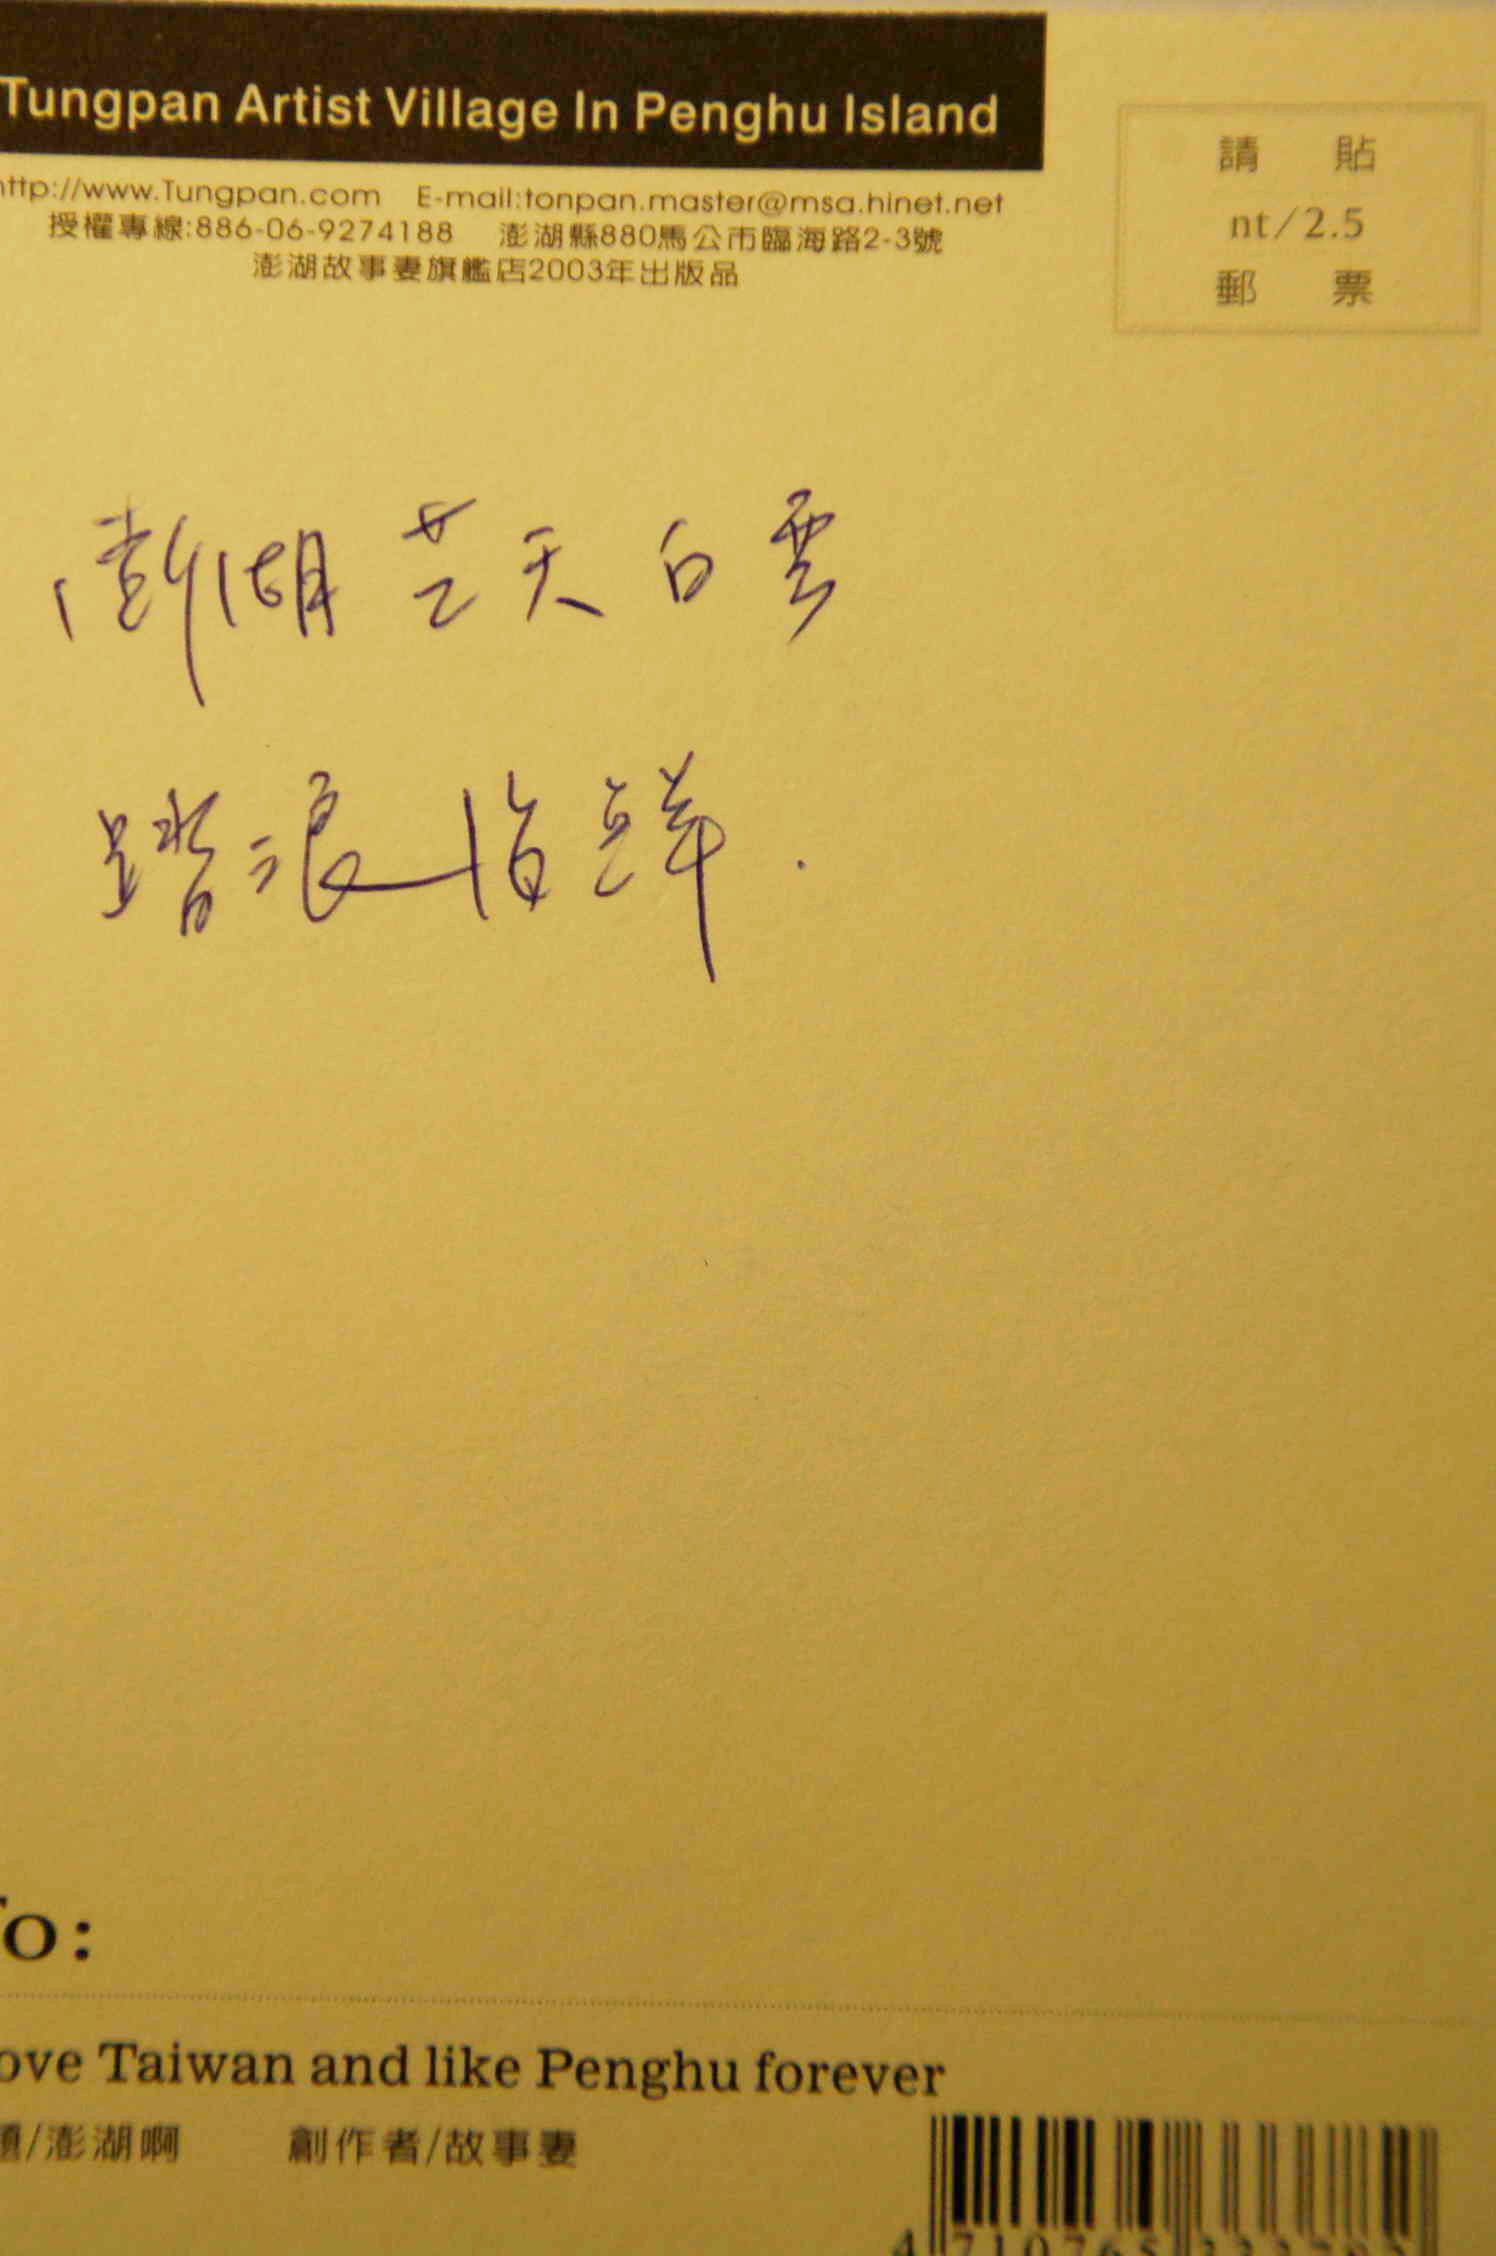 Tungpan Artist Village In Penghu Island
http://www.Tungpan.com E-mail:tonpan.master@msa.hinet.net
授權專線:886-06-9274188 澎湖縣880馬公市臨海路2-3號
澎湖故事妻旗艦店2003年出版品
請貼
nt/2.5
郵票
澎湖 天白雲
踏浪
To:
ove Taiwan and like Penghu forever
題/澎湖啊 創作者/故事妻
4 710765